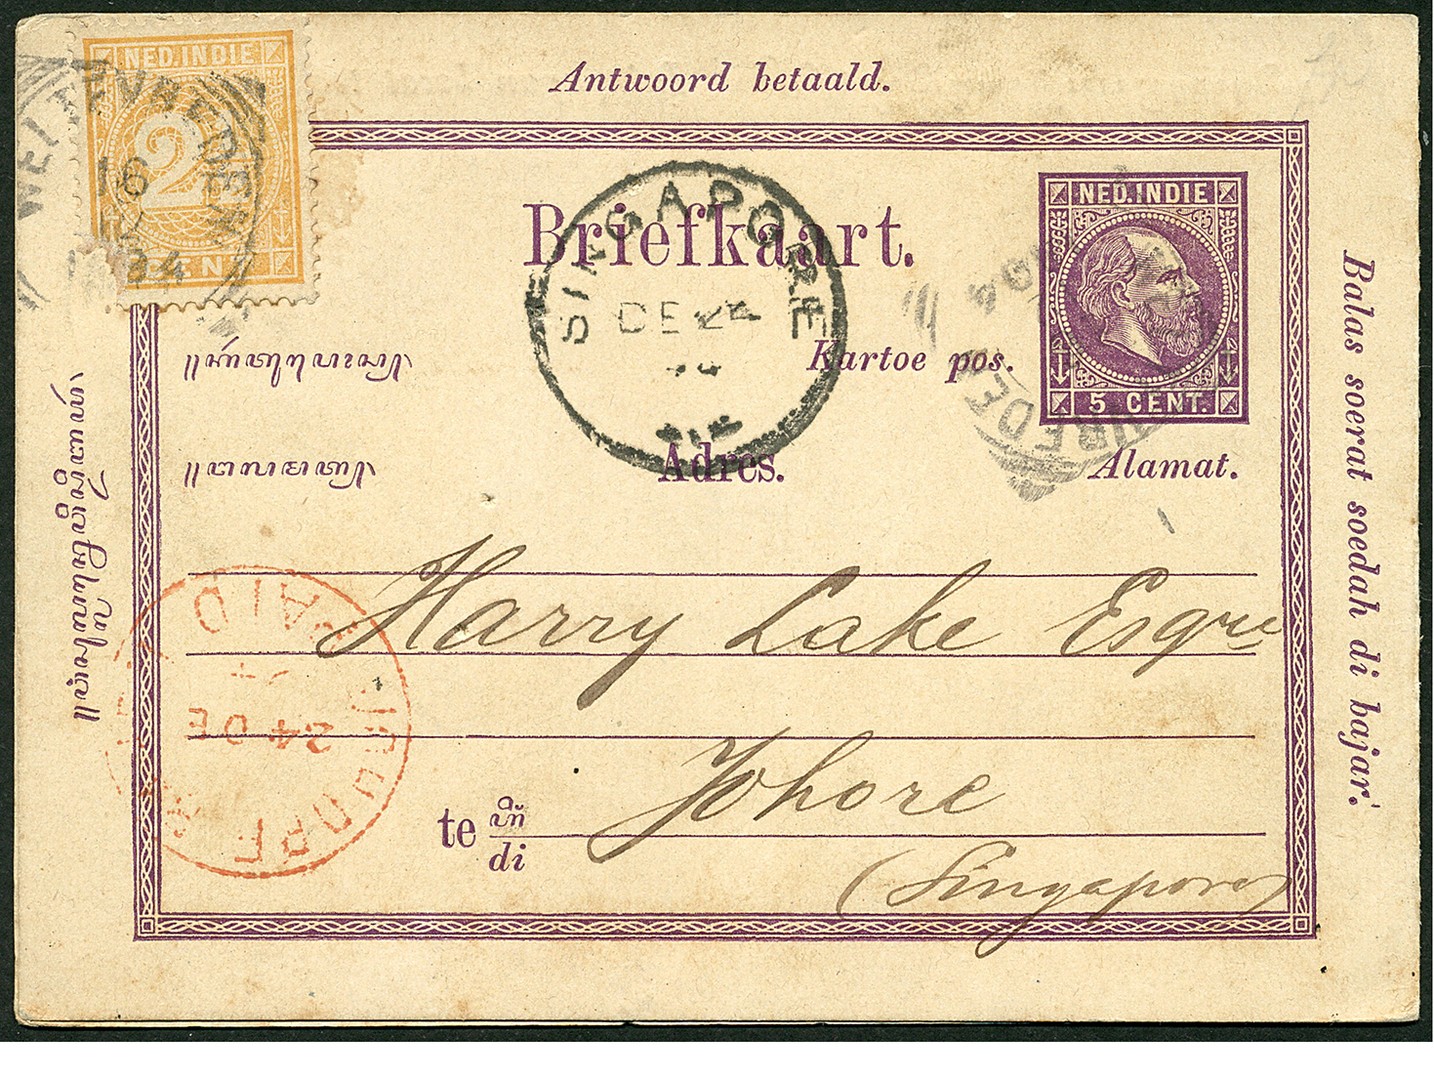 Antwoord betaald.
NED.INDIE
2
CENT
WELTEVREDEN
16
94
Briefkaart.
SINGAPORE
DE 24
NED.INDIE
5 CENT.
Kartoe pos.
Adres.
Alamat.
Balas soerat soedah di bajar.
Harry Lake Esqre
Johore
te
di
(Singapore)
PAID
24 DE